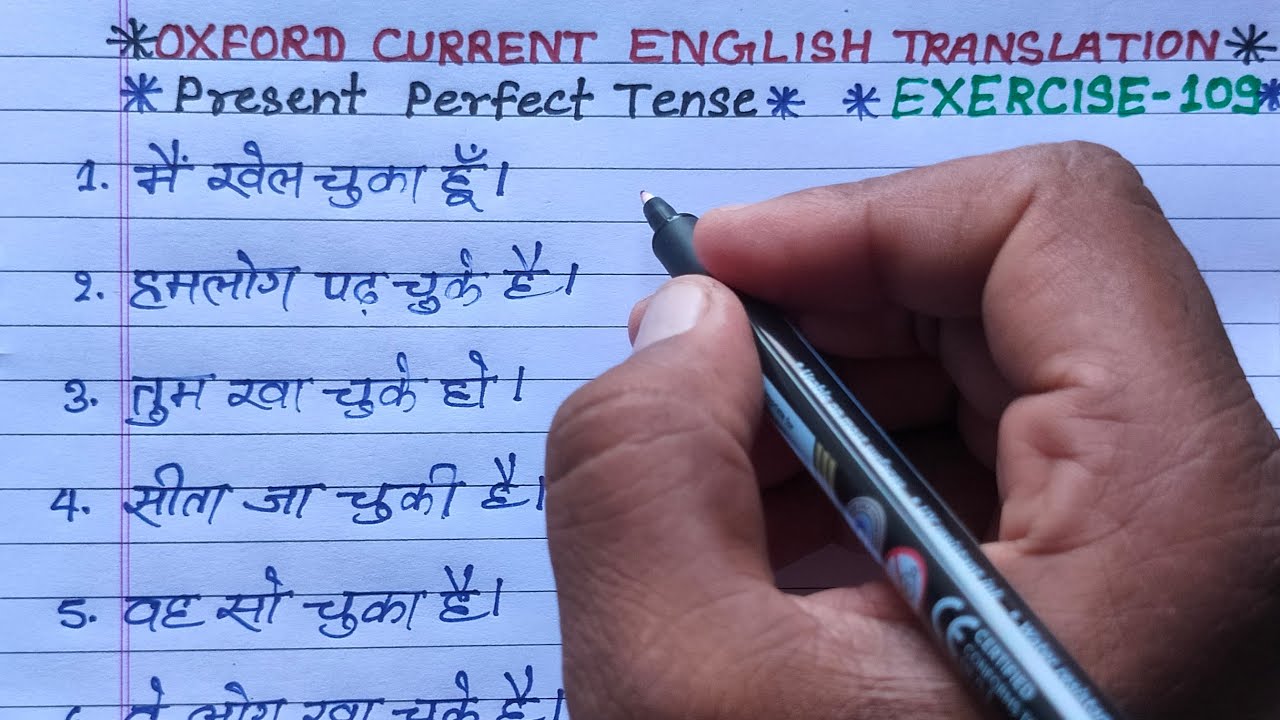 *OXFORD CURRENT ENGLISH TRANSLATION*
*Present Perfect Tense* *EXERCISE-109*
1. मैं खेल चुका हूँ।
2. हमलोग पढ़ चुके है।
3. तुम खा चुके हो।
4. सीता जा चुकी है।
5. वह सो चुका है।
वे लोग खा चुके है।
CE
CERTIFIED